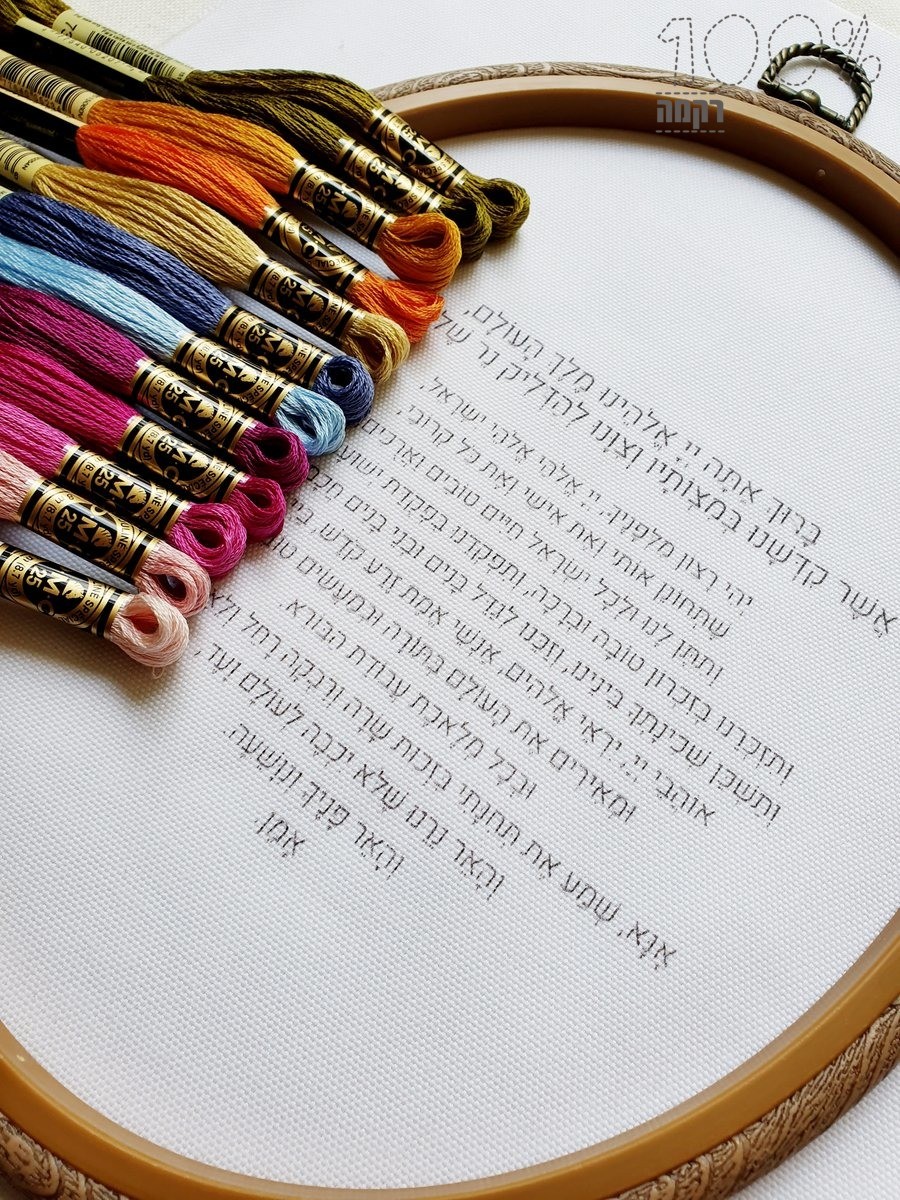 100%
רקמה
בָּרוּךְ אַתָּה יְיָ אֱלֹהֵינוּ מֶלֶךְ הָעוֹלָם,
אֲשֶׁר קִדְּשָׁנוּ בְּמִצְוֹתָיו וְצִוָּנוּ לְהַדְלִיק נֵר
יְהִי רָצוֹן מִלְּפָנֶיךָ, יְיָ אֱלֹהֵי יִשְׂרָאֵל,
שֶׁתְּחוֹנֵן אוֹתִי וְאֶת אִישִׁי וְאֶת כָּל קְרוֹבַי,
וְתִתֵּן לָנוּ וּלְכָל יִשְׂרָאֵל חַיִּים טוֹבִים וַאֲרֻכִּים
וְתִזְכְּרֵנוּ בְּזִכְרוֹן טוֹבָה וּבְרָכָה, וְתִפְקְדֵנוּ בִּפְקֻדַּת
וְתַשְׁכֵּן שְׁכִינָתְךָ בֵּינֵינוּ, וְזַכֵּנוּ לְגַדֵּל בָּנִים וּבְנֵי בָנִים
אוֹהֲבֵי יְיָ, יִרְאֵי אֱלֹהִים, אַנְשֵׁי אֱמֶת זֶרַע קֹדֶשׁ,
וּמְאִירִים אֶת הָעוֹלָם בְּתוֹרָה וּבְמַעֲשִׂים
וּבְכָל מְלֶאכֶת עֲבוֹדַת הַבּוֹרֵא.
אָנָּא, שְׁמַע אֶת תְּחִנָּתִי בִּזְכוּת שָׂרָה וְרִבְקָה רָחֵל
וְהָאֵר נֵרֵנוּ שֶׁלֹּא יִכְבֶּה לְעוֹלָם וָעֶד,
וְהָאֵר פָּנֶיךָ וְנִוָּשֵׁעָה.
אָמֵן.